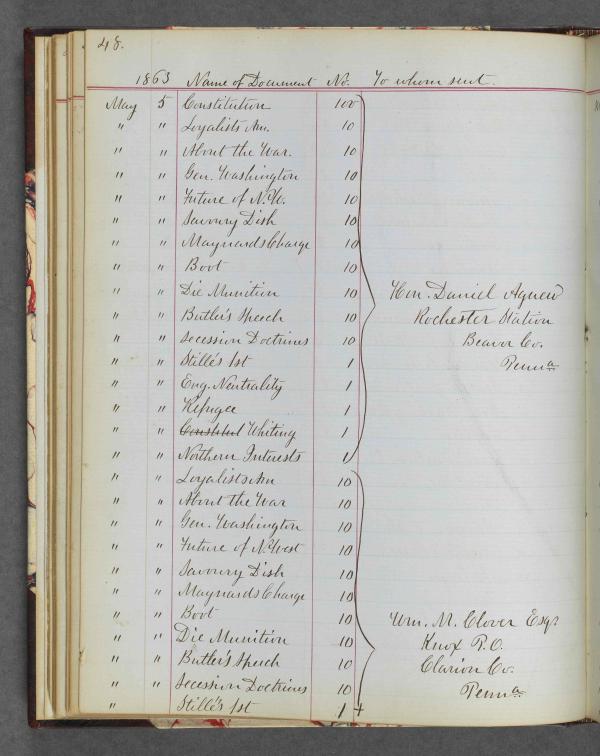 48.
1863 Name of Document No. To whom sent.
May 5 Constitution 100
" " Loyalists Am. 10
" " About the War. 10
" " Gen. Washington 10
" " Future of N.W. 10
" " Savoury Dish 10
" " Maynards Charge 10
" " Boot 10
" " Die Munition 10
" " Butler's Speech 10
" " Secession Doctrines 10
" " Stillé's 1st 1
" " Eng. Neutrality 1
" " Refugee 1
" " Constitut Whiting 1
" " Northern Interests 1
Hon. Daniel Agnew
Rochester Station
Beaver Co.
Penna
" " Loyalists Am 10
" " About the War 10
" " Gen. Washington 10
" " Future of N.West 10
" " Savoury Dish 10
" " Maynards Charge 10
" " Boot 10
" " Die Munition 10
" " Butler's Speech 10
" " Secession Doctrines 10
" Stille's 1st 1 +
Wm. M. Clover Esqr
Knox P.O.
Clarion Co.
Penna